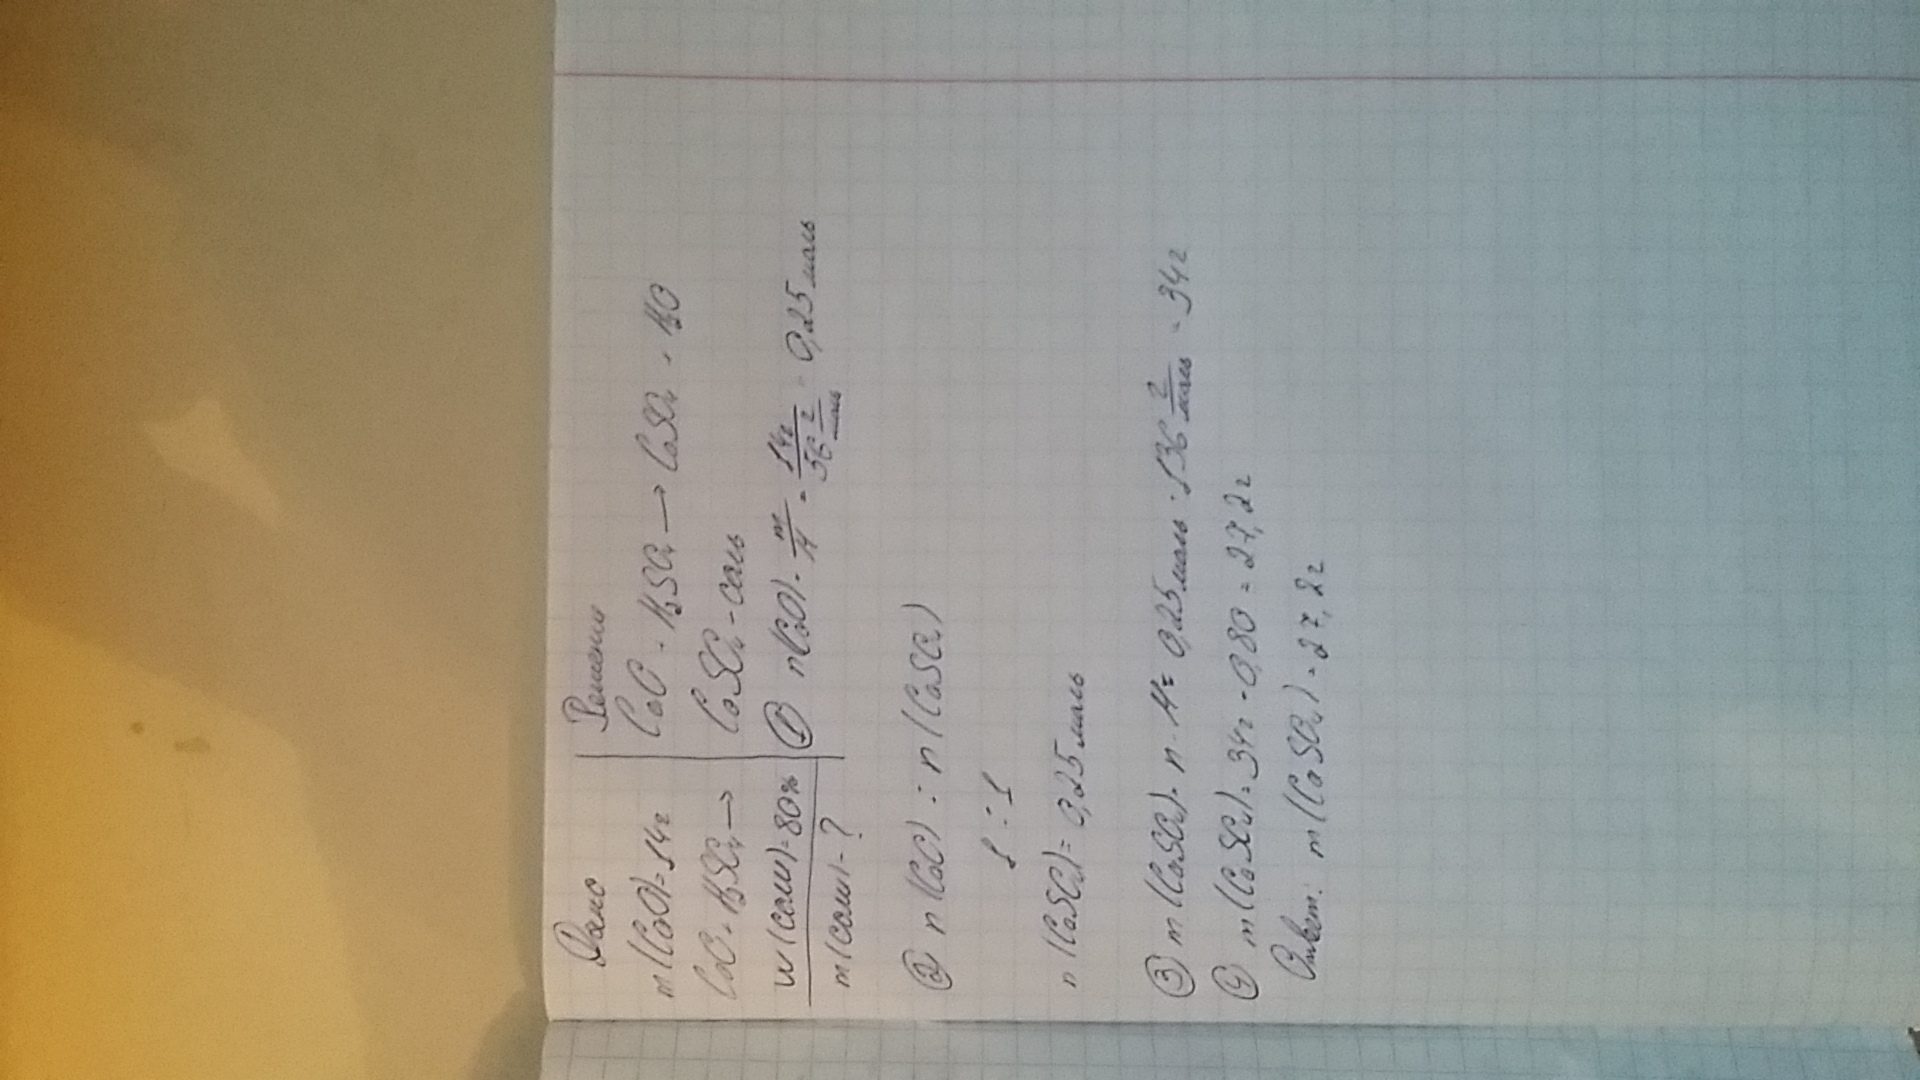 Дано
m(CaO)=14г
CaO + H₂SO₄ →
w(соли)=80%
m(соли)-?
Решение
CaO + H₂SO₄ → CaSO₄ + H₂O
CaSO₄ - соль
① n(CaO) = m/M = 14г/56 г/моль = 0,25 моль
② n(CaO) : n(CaSO₄)
1 : 1
n(CaSO₄)= 0,25 моль
③ m(CaSO₄) = n · M = 0,25 моль · 136 г/моль = 34г
④ m(CaSO₄) = 34г · 0,80 = 27,2г
Ответ: m(CaSO₄) = 27,2г